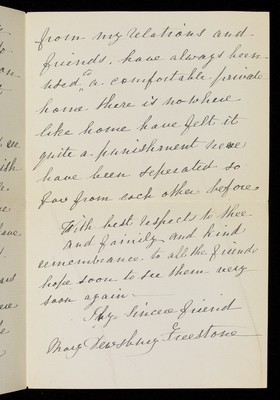 from my relations and
friends. have always been
used to a comfortable private
home there is no where
like home have felt it
quite a punishment never
have been seperated so
far from each other before
With best respects to thee
and family and kind
remembrance to all the friends
hope soon to see them very
soon again
Thy Sincere friend
Mary Freestone